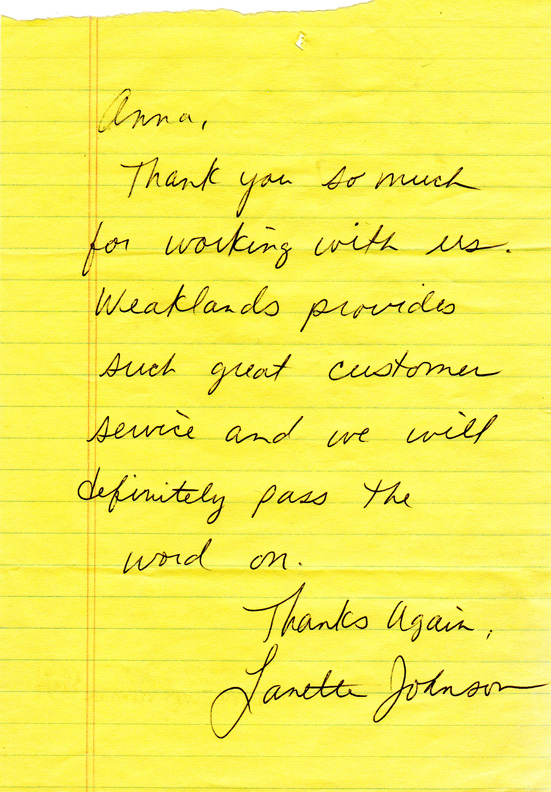 Anna,
Thank you so much
for working with us.
Weaklands provides
such great customer
service and we will
definitely pass the
word on.
Thanks Again,
Lanette Johnson